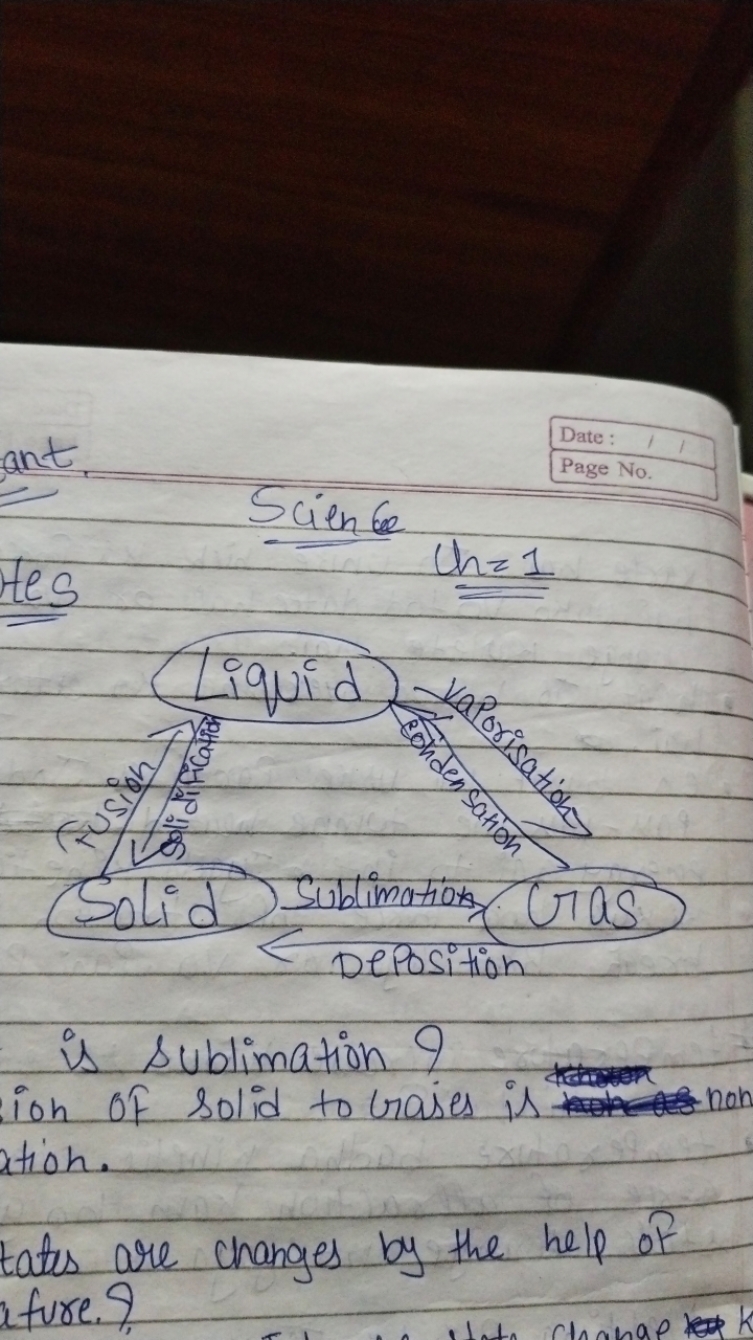 ant.
Date : / /
Page No.
Science
Ch = 1
tes
Liquid
Vaporisation
Condensation
Fusion
Solidification
Solid
Sublimation
Gas
Deposition
is sublimation ?
sion of solid to Gases is non
ation.
tates are changes by the help of
ature. ?
state change